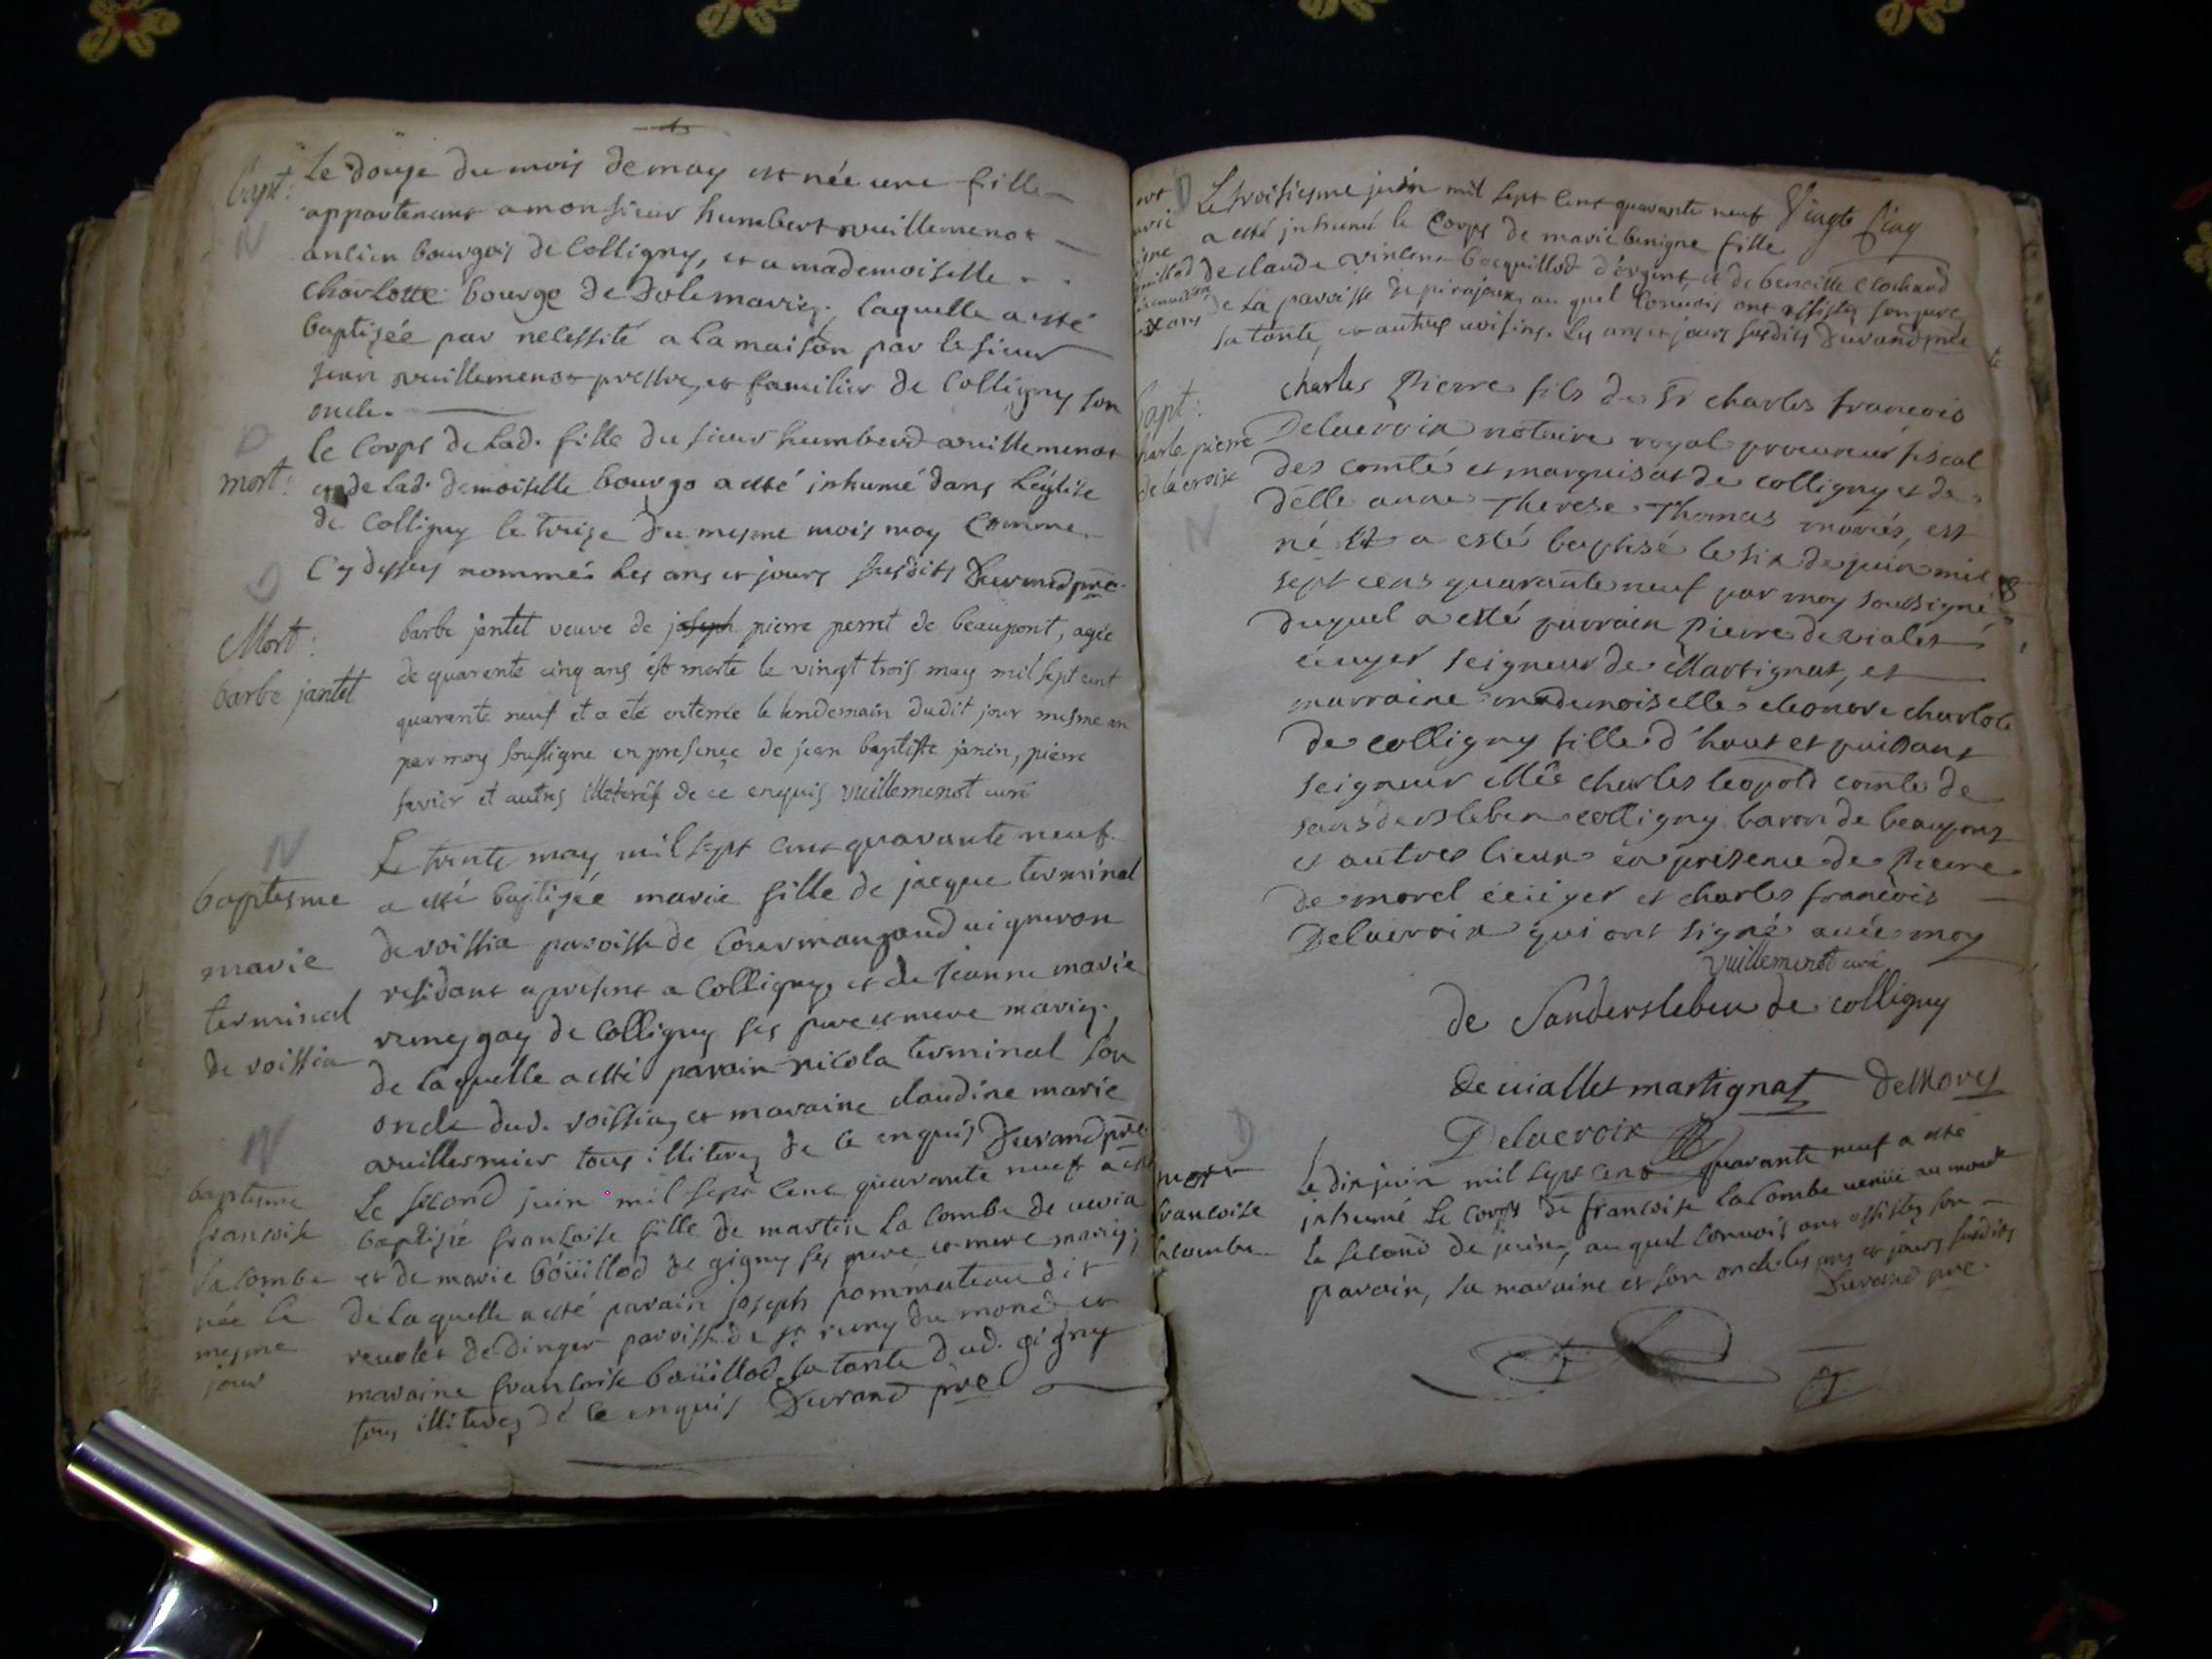 Bapt:
N
Le douze du mois de may est née une fille
appartenant a monsieur humbert vuillemenot
ancien bourgois de Colligny, et a mademoiselle
charlotte bourge de Dole mariez. laquelle a esté
baptizée par necessité a la maison par le sieur
jean vuillemenot prestre, et familier de Colligny son
oncle.
D
mort:
le Corps de lad. fille du sieur humberd vuillemenot
et de lad. demoiselle bourgo a esté inhumé dans L'église
de Colligny le treize du mesme mois may Comme
Cy dessus nommés les ans et jours susdits Durand pre
D
Mort:
barbe jantet
barbe jantet veuve de joseph pierre perret de beaupont, agée
de quarente cinq ans est morte le vingt trois may mil sept cent
quarente neuf et a eté enterrée le lendemain dudit jour mesme an
par moy soussigne en presence de jean baptiste janin, pierre
favier et autres illeterés de ce enquis vuillemenot curé
N
baptesme
marie
terminal
de voissia
Le trente may mil sept cent quarante neuf
a esté baptizée marie fille de jacque terminal
de voissia paroisse de Courmangoud vigneron
residant a present a Colligny, et de jeanne marie
remey gay de Colligny ses pere et mere mariez.
de laquelle a esté parain nicola terminal son
oncle dud. voissia, et maraine claudine marie
vuillermier tous illiterez de ce enquis Durand pre
N
baptesme
francoise
la Combe
née le
mesme
jour
Le second juin mil sept cent quarante neuf a esté
baptizée francoise fille de martin La Combe de
et de marie böüillod de gigny ses pere et mere mariez;
de laquelle a esté parain joseph pommateau dit
revolet de dingier paroisse de st remy du mond et
maraine francoise boüillod sa tante dud. gigny
tous illiterez de ce enquis Durand pre
Vingt Cinq
D
Le troisiesme juin mil sept cent quarante neuf
a esté inhumé le Corps de marie benigne fille
de claude vincent bocquillod d'orgent, et de benoitte Clochard
de la paroisse de pirajoux, au quel Convois ont assistez son pere,
sa tante, et autres voisins. Les ans et jours susdits Durand pre
bapt:
harle pierre
de lacroix
N
Charles Pierre fils du Sr charles francois
Delacroix notaire royal procureur fiscal
des comté et marquisat de colligny et de
delle anne Therese Thomas mariés, est
né Et a esté baptisé le six de juin mil
sept cens quarante neuf par moy soussigné,
duquel a esté parrain Pierre de vialet
écuyer seigneur de Martignat, et
marraine mademoiselle eleonore charlote
de colligny fille d'haut et puissant
seigneur Mre charles leopold comte de
sandersleben colligny baron de beaupont
et autres lieux en presence de Pierre
de morel écuyer et charles francois
Delacroix qui ont signé avec moy
vuillemenot curé
de Sandersleben de colligny
de viallet martignat deMorel
Delacroix
D
mort
francoise
lacombe
Le dix juin mil sept cent quarante neuf a esté
inhumé Le corps de francoise la Combe venüe au monde
le second de juin, au quel Convois ont assistez son
parain, sa maraine et son oncle les ans et jours susdits
Durand pre